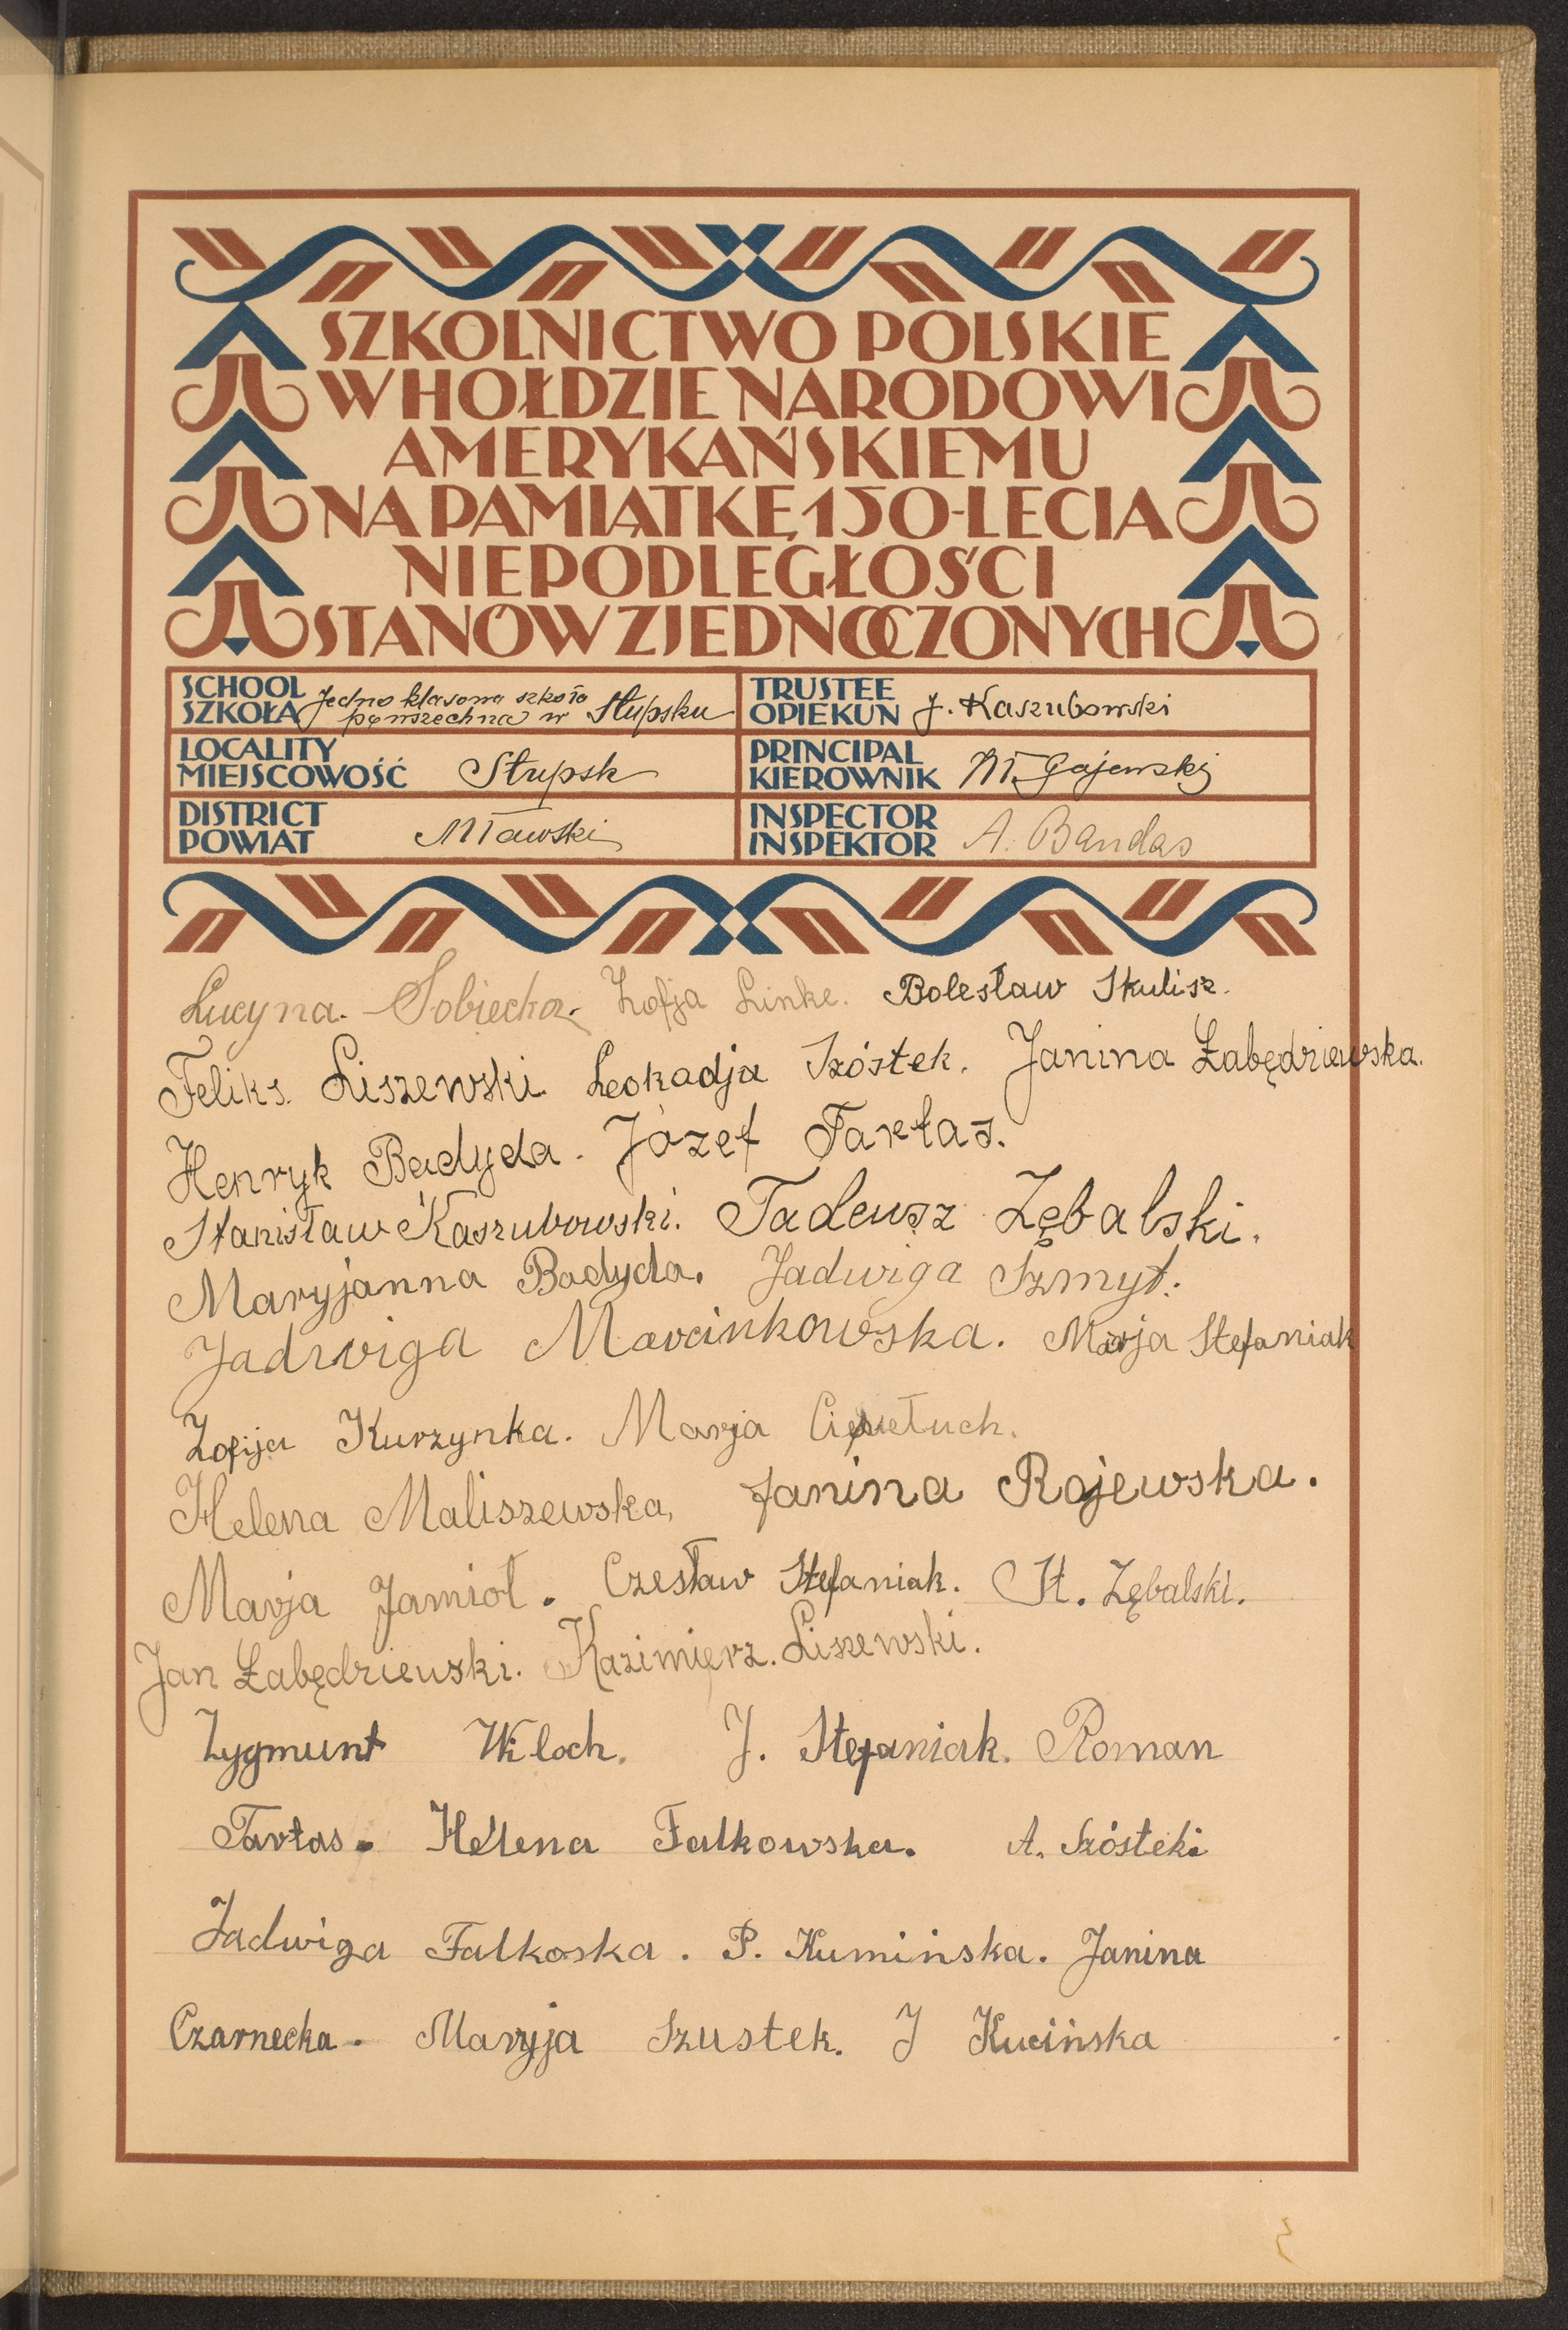 SZKOLNICTWO POLSKIE
W HOŁDZIE NARODOWI
AMERYKAŃSKIEMU
NA PAMIĄTKĘ 150-LECIA
NIEPODLEGŁOŚCI
STANÓW ZJEDNOCZONYCH
SCHOOL
SZKOŁA
Jedno klasowa szkoła
powszechna w Słupsku
TRUSTEE
OPIEKUN
J. Kaszubowski
LOCALITY
MIEJSCOWOŚĆ
Słupsk
PRINCIPAL
KIEROWNIK
Gajewski
DISTRICT
POWIAT
Mławski
INSPECTOR
INSPEKTOR
A. Bandas
Lucyna. Sobiecka. Zofja Linke. Bolesław Skulisz.
Feliks. Liszewski. Leokadja Szóstek. Janina Łabędziewska.
Henryk Badyda. Józef Tartas.
Stanisław Kaszubowski. Tadeusz Zębalski.
Maryjanna Badyda. Jadwiga Szmyt.
Jadwiga Marcinkowska. Marja Stefaniak
Zofija Kurzynka. Marja
Helena Maliszewska, Janina Rajewska.
Marja Jamioł. Czesław Stefaniak. St. Zębalski.
Jan Łabędziewski. Kazimierz. Liszewski.
Zygmunt Wloch. J. Stefaniak. Roman
Tartas. Helena Falkowska. A. Szóstek
Jadwiga Falkoska. P. Kumińska. Janina
Czarnecka. Maryja Szustek. J Kucińska